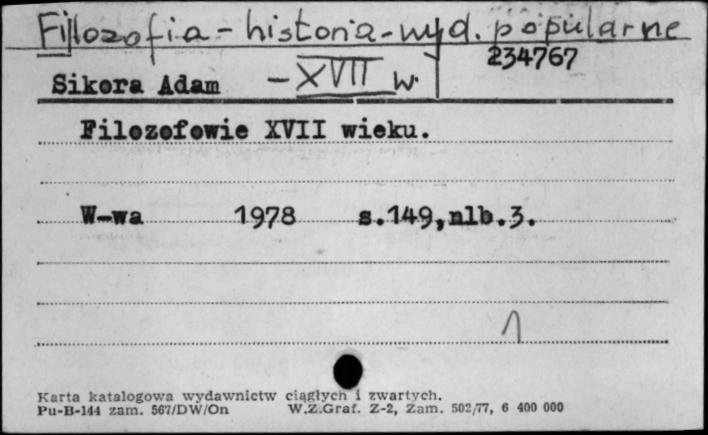 Filozofia - historia - wyd. popularne
234767
Sikora Adam - XVII w.
Filozofowie XVII wieku.
W-wa 1978 s.149,nlb.3.
1
Karta katalogowa wydawnictw ciągłych i zwartych.
Pu-B-144 zam. 567/DW/On W.Z.Graf. Z-2, Zam. 502/77, 6 400 000